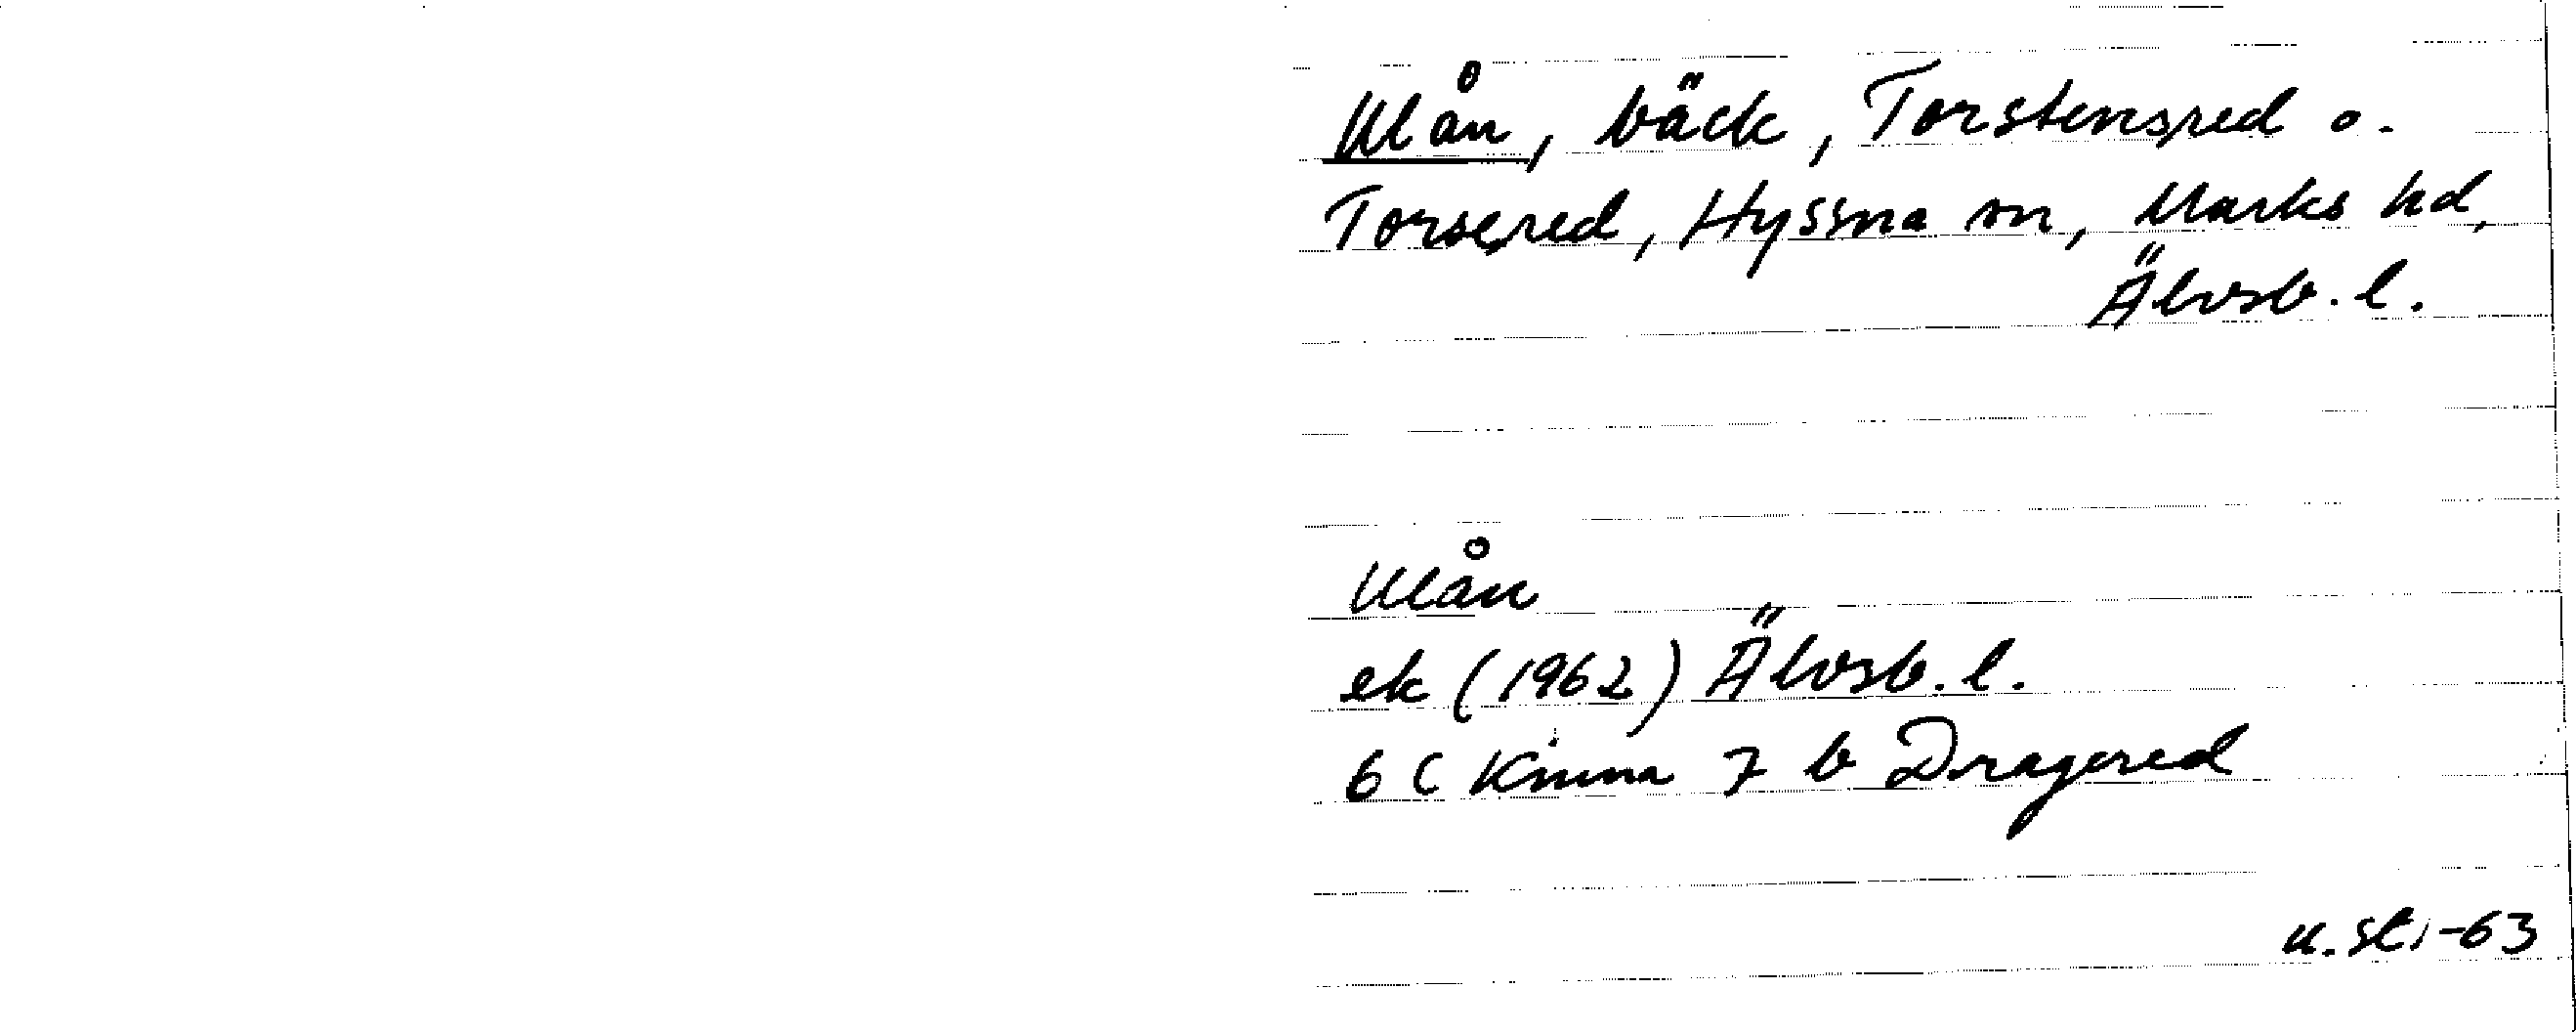 Ulån, bäck, Torstensred o.
Torsered, Hyssna sn, Marks hd,
Älvsb. l.
Ulån
ek (1962) Älvsb. l.
6 C Kinna 7 b Dragered
-63